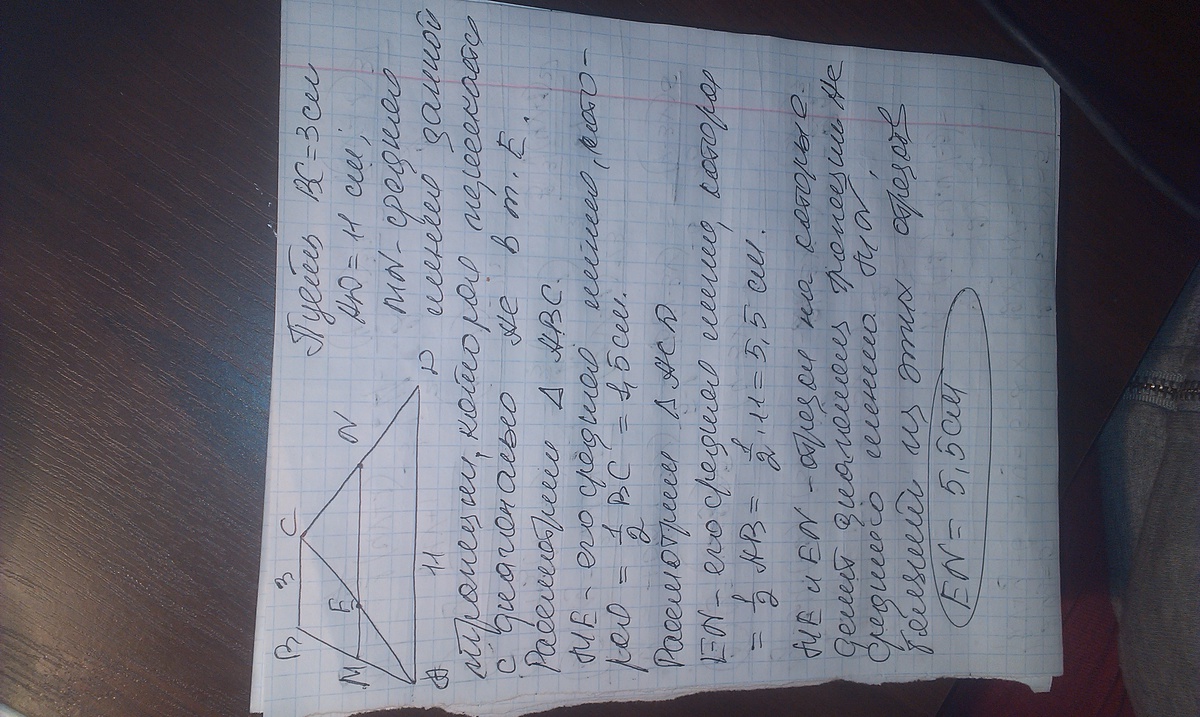 Пусть BC = 3 см
AD = 11 см;
MN - средняя
линия данной
трапеции, которая пересекается
с диагональю AC в т. E.
Рассмотрим Δ ABC.
ME - его средняя линия, кото-
рая = 1/2 BC = 1,5 см.
Рассмотрим Δ ACD
EN - его средняя линия, которая
= 1/2 AB = 1/2 · 11 = 5,5 см.
ME и EN - отрезки на которые
делит диагональ трапеции AC
среднюю линию MN
больший из этих отрезков
EN = 5,5 см
B 3 C
M E N
A 11 D